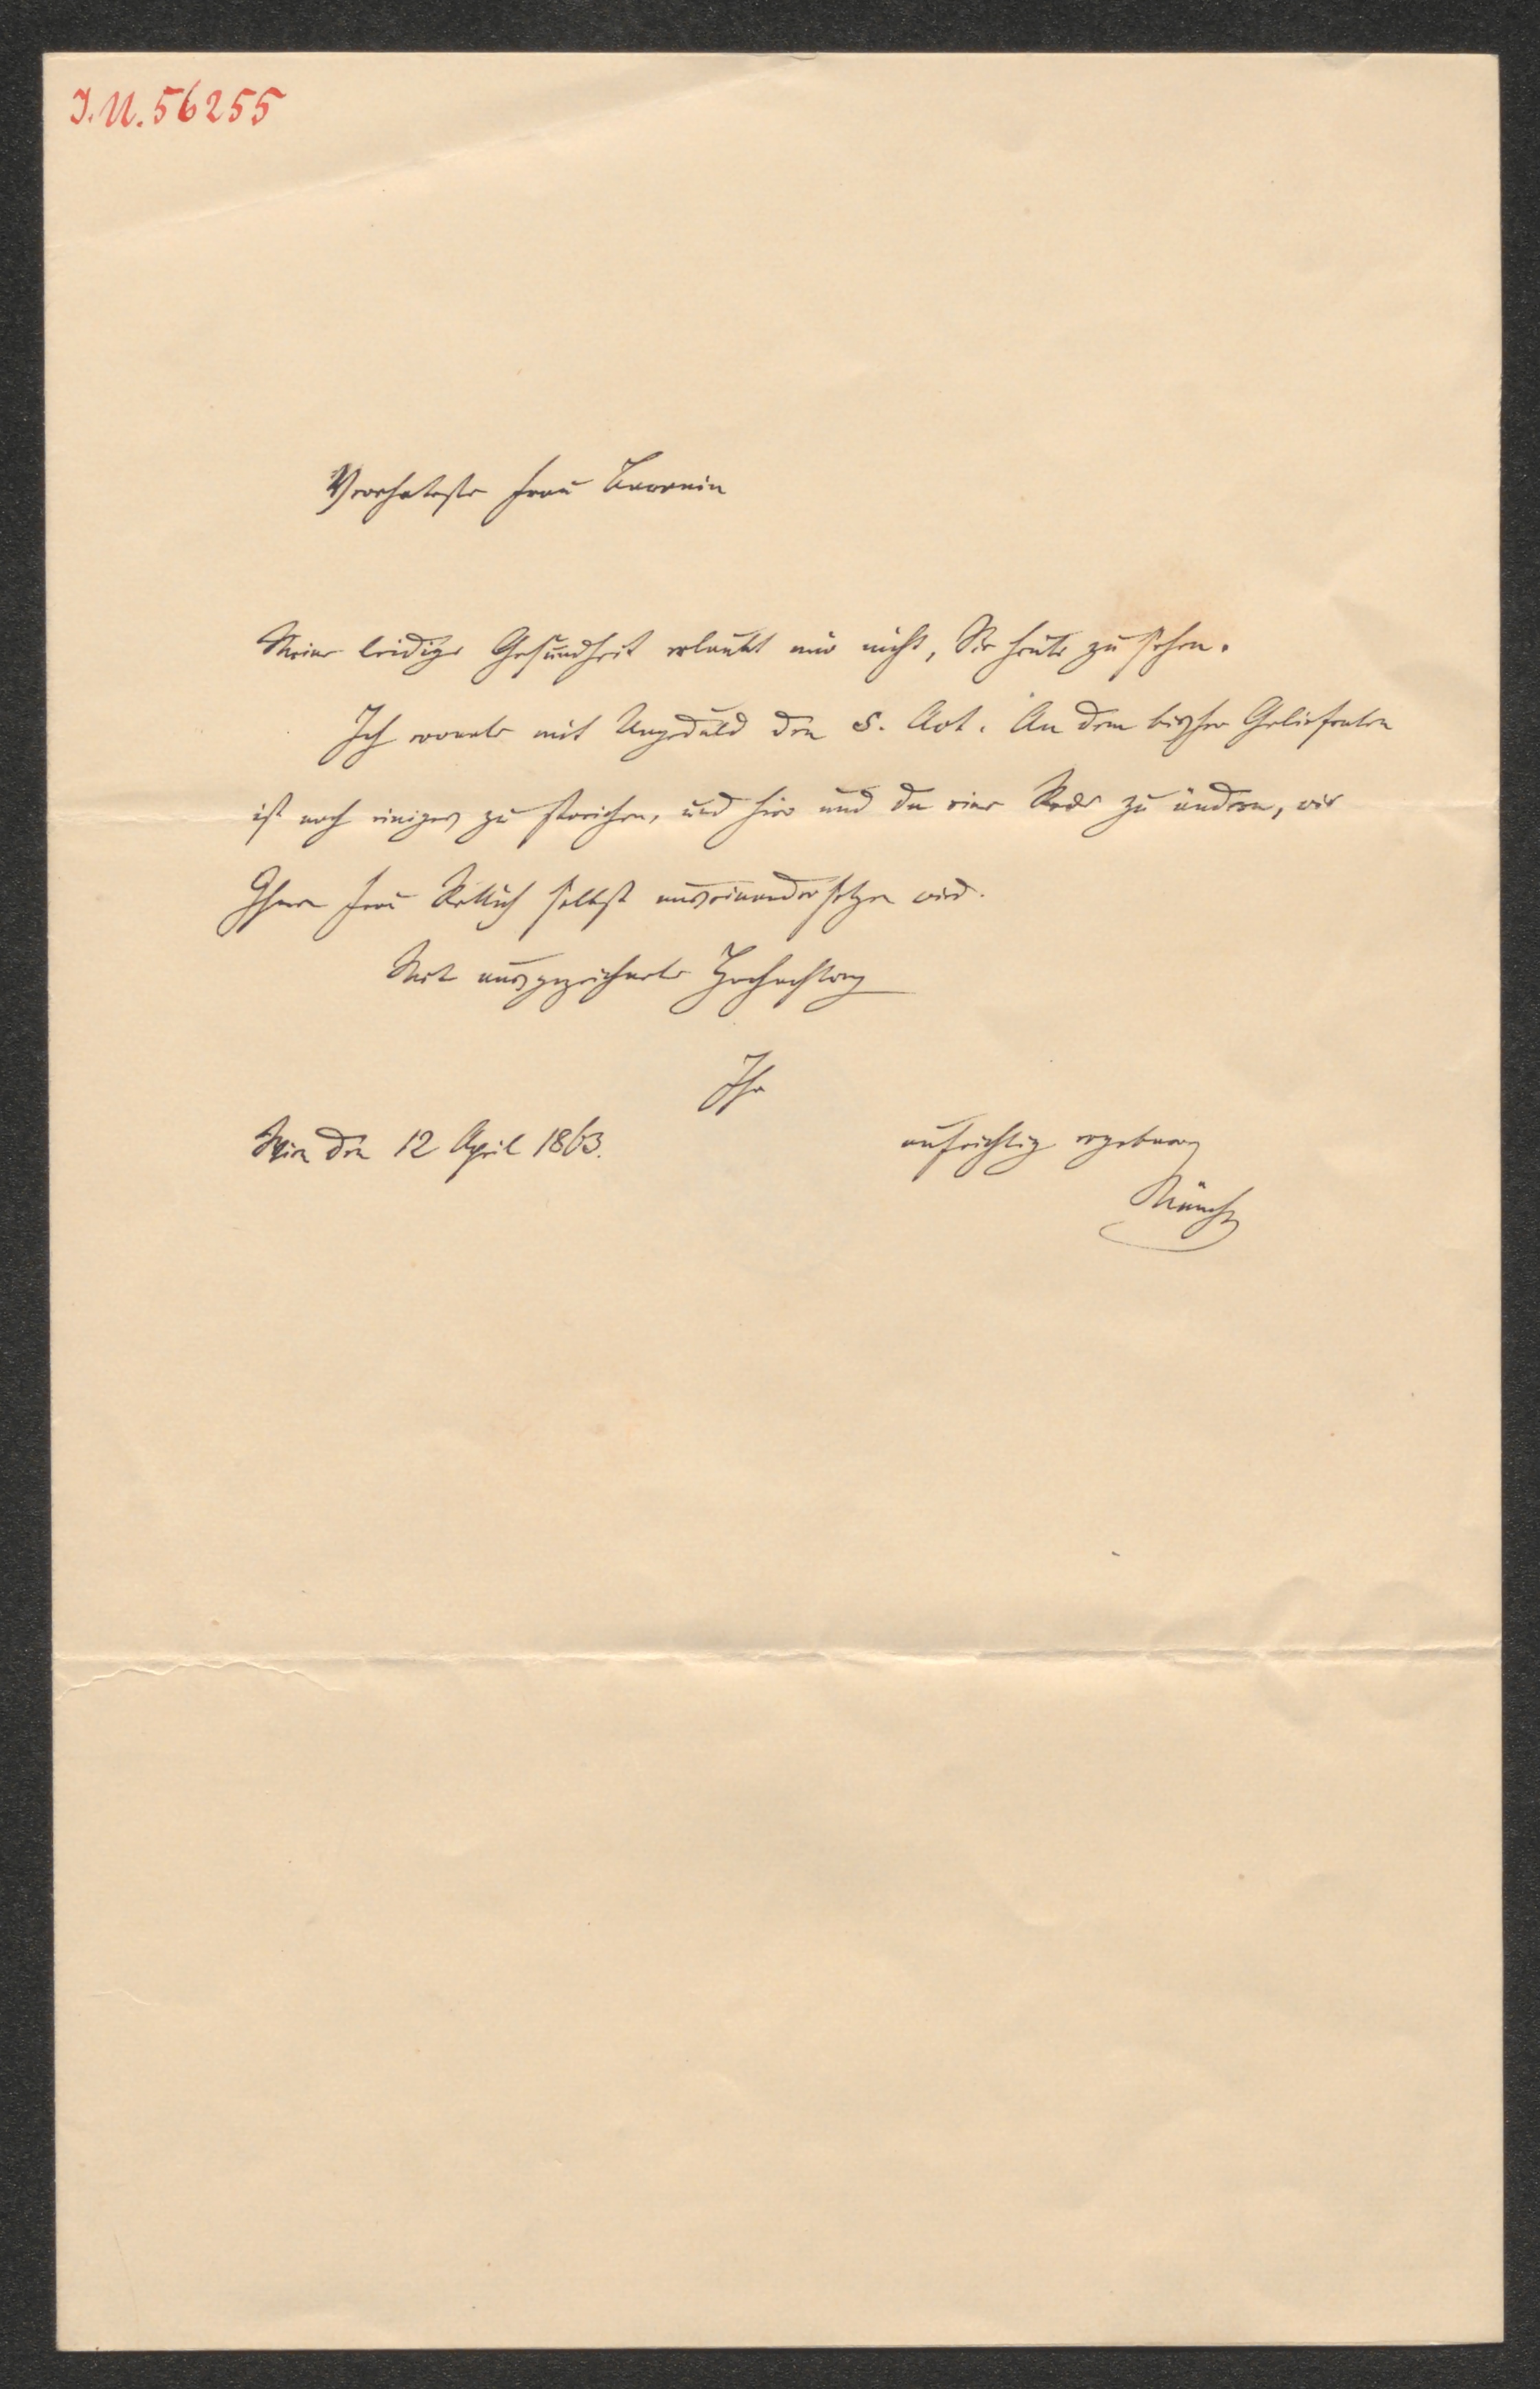 I.N. 56255
Verehrteste Frau Baronin
Meine leidige Gesundheit erlaubt mir nicht, Sie heute zu sehen.
Ich warte mit Ungeduld den 5. Act. An dem bisher Gelieferten
ist noch einiges zu streichen, und hier und da eine Rede zu ändern, wie
Ihnen Frau Rettich selbst auseinandersetzen wird.
Mit ausgezeichneter Hochachtung
Ihr
Wien den 12 April 1863.
aufrichtig ergebener
Münch